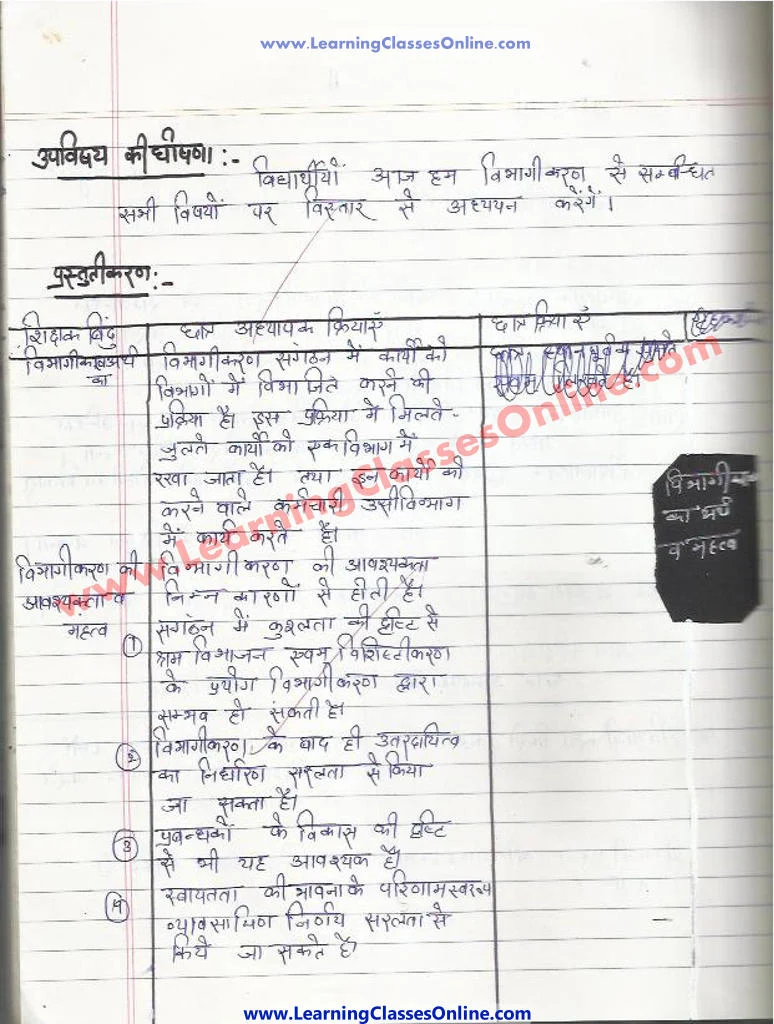 www.LearningClassesOnline.com
उपविषय की घोषणा :-
विद्यार्थीयों आज हम विभागीकरण से सम्बन्धित
सभी विषयों पर विस्तार से अध्ययन करेंगें।
प्रस्तुतीकरण:-
शिक्षक बिंदु छात्र अध्यापक क्रियाएँ छात्र क्रियाएँ
विभागीकरण अर्थ का
विभागीकरण संगठन में कार्यो को
विभागों में विभाजित करने की
प्रक्रिया है। इस प्रक्रिया में मिलते-
जुलते कार्यो को एक विभाग में
रखा जाता है। तथा इन कार्यो को
करने वाले कर्मचारी उसी विभाग
में कार्य करते है।
विभागीकरण की
आवश्यकता व
महत्व
विभागीकरण की आवश्यकता
निम्न कारणों से होती है।
① संगठन में कुशलता की दृष्टि से
श्रम विभाजन एवम विशिष्टीकरण
के प्रयोग विभागीकरण द्वारा
सम्भव हो सकती है।
② विभागीकरण के बाद ही उतरदायित्व
का निर्धारण सरलता से किया
जा सकता है।
③ प्रबन्धकों के विकास की दृष्टि
से भी यह आवश्यक है।
④ स्वायतता की भावना के परिणामस्वरूप
व्यावसायिक निर्णय सरलता से
किये जा सकते है।
विभागीकरण
का अर्थ
व महत्व
www.LearningClassesOnline.com
www.LearningClassesOnline.com